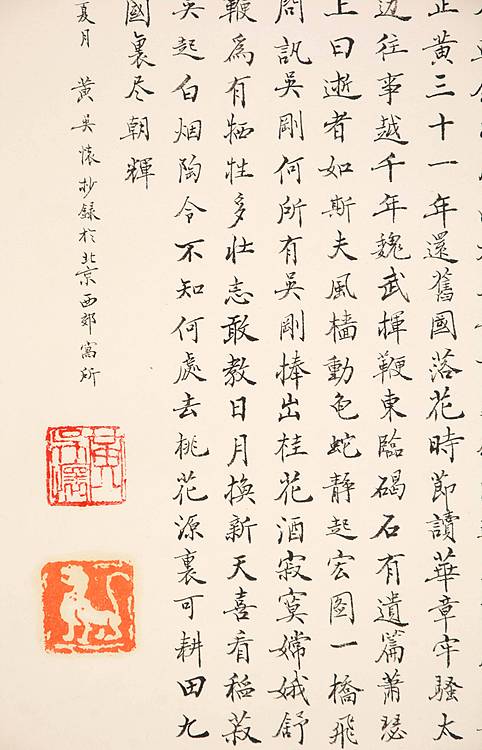 正黃三十一年還舊國落花時節讀華章牢騷太
边往事越千年魏武揮鞭東臨碣石有遺篇蕭瑟
上曰逝者如斯夫風檣動龟蛇静起宏图一橋飛
問訊吳剛何所有吳剛捧出桂花酒寂寞嫦娥舒
鞭爲有牺牲多壮志敢教日月換新天喜看稻菽
吳起白烟陶令不知何處去桃花源裏可耕田九
國裏尽朝輝
夏月 黃吳懷抄録於北京西郊寓所
黃
吳懷